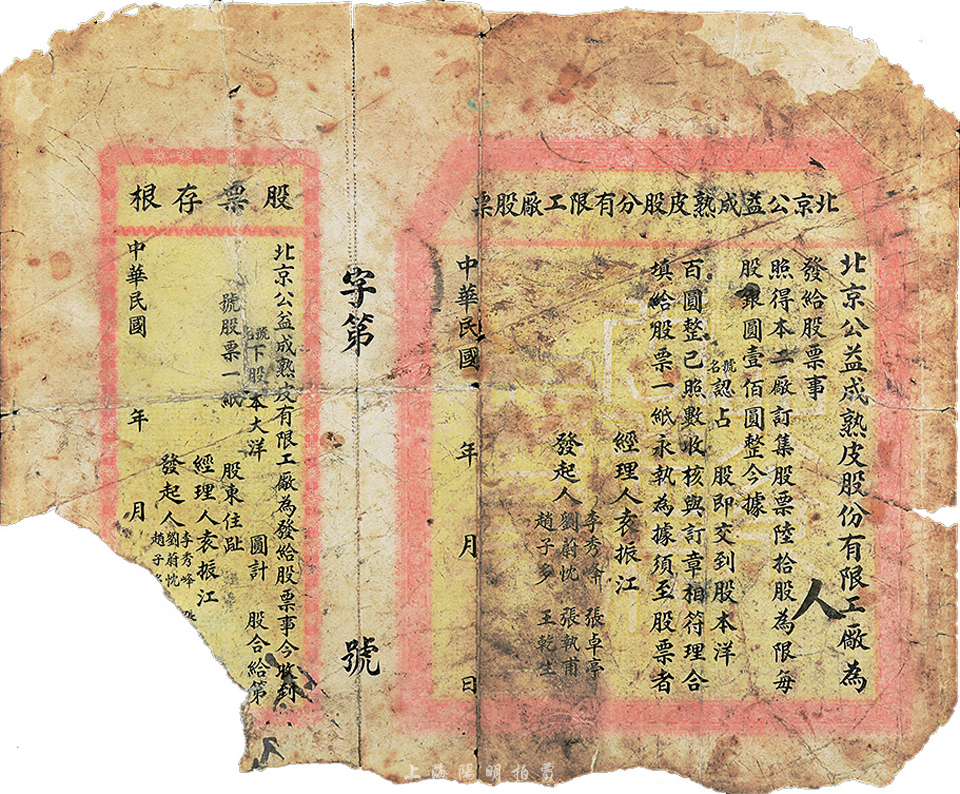 北京公益成熟皮股分有限工厰股票
北京公益成熟皮股份有限工廠為
發給股票事
照得本工廠訂集股票陸拾股為限每
股銀圓壹佰圓整今據
名號認占 股即交到股本洋
百圓整已照數收核與訂章相符理合
填給股票一紙永執為據須至股票者
人
經理人袁振江
發起人
李秀峰 張卓亭
劉蔚忱 張執甫
趙子多 王乾生
中華民國 年 月 日
字第 號
股票存根
北京公益成熟皮有限工廠為發給股票事今收到
名號下股本大洋 圓計 股合給第
號股票一紙
股東住趾
經理人袁振江
發起人
李秀峰
劉蔚忱
趙子多
中華民國 年 月
上海陽明拍賣